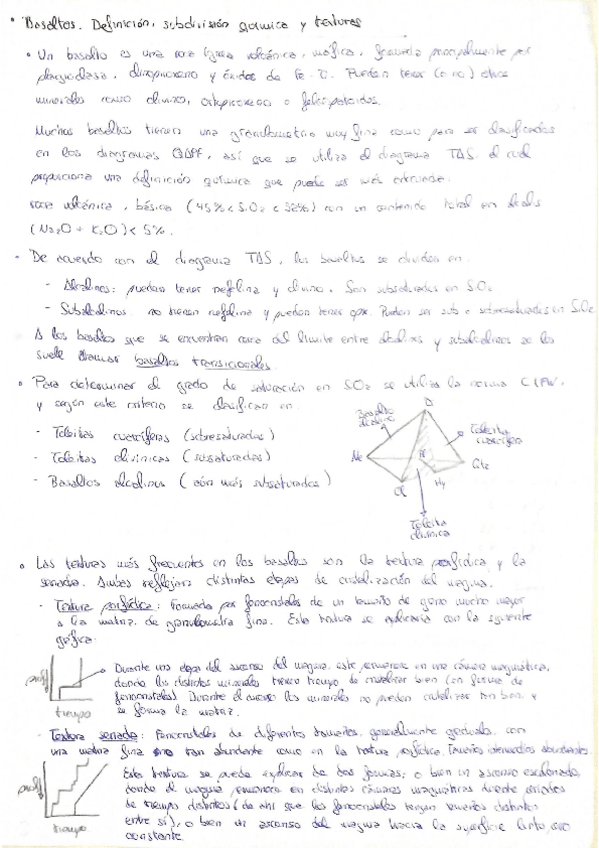 • Basaltos. Definición, subdivisión química y texturas
• Un basalto es una roca ígnea volcánica, máfica, formada principalmente por
plagioclasa, clinopiroxeno y óxidos de Fe-Ti. Pueden tener (o no) otros
minerales como olivino, ortopiroxeno o feldespatoides.
Muchos basaltos tienen una granulometría muy fina como para ser clasificados
en los diagramas QAPF, así que se utiliza el diagrama TAS, el cual
proporciona una definición química que puede ser más adecuada:
roca volcánica, básica (45% < SiO2 < 52%) con un contenido total en álcalis
(Na2O + K2O) < 5%.
- De acuerdo con el diagrama TAS, los basaltos se dividen en:
- Alcalinos: pueden tener nefelina y olivino. Son subsaturados en SiO2
- Subalcalinos: no tienen nefelina y pueden tener opx. Pueden ser sub o sobresaturados en SiO2
A los basaltos que se encuentran cerca del límite entre alcalinos y subalcalinos se les
suele llamar basaltos transicionales.
• Para determinar el grado de saturación en SiO2 se utiliza la norma CIPW,
y según este criterio se clasifican en:
- Toleitas cuarcíferas (sobresaturadas)
- Toleitas olivínicas (subsaturadas)
- Basaltos alcalinos (aún más subsaturados)
Basalto
alcalino
Di
Toleita
cuarcífera
Ne
Qtz
Ol
Hy
Toleita
olivínica
• Las texturas más frecuentes en los basaltos son la textura porfídica y la
seriada. Ambas reflejan distintas etapas de cristalización del magma.
- Textura porfídica: Formada por fenocristales de un tamaño de grano mucho mayor
a la matriz, de granulometría fina. Esta textura se explicaría con la siguiente
gráfica:
prof
tiempo
→ Durante una etapa del ascenso del magma, este permanece en una cámara magmática,
donde los distintos minerales tienen tiempo de cristalizar bien (en forma de
fenocristales). Durante el ascenso los minerales no pueden cristalizar tan bien y
se forma la matriz.
- Textura seriada: Fenocristales de diferentes tamaños, generalmente graduales, con
una matriz fina no tan abundante como en la textura porfídica. Tamaños intermedios abundantes.
prof
tiempo
Esta textura se puede explicar de dos formas; o bien un ascenso escalonado,
donde el magma permanece en distintas cámaras magmáticas durante periodos
de tiempo distintos (de ahí que los fenocristales tengan tamaños distintos
entre sí), o bien un ascenso del magma hacia la superficie lento, pero
constante.